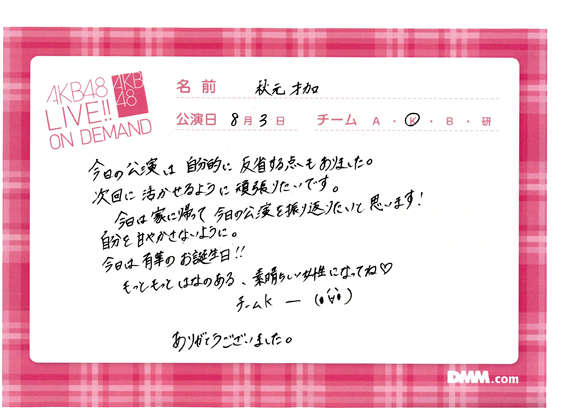 AKB48
LIVE!!
ON DEMAND
AKB
48
名前 秋元才加
公演日 8月3日 チーム A・K・B・研
今日の公演は自分的に反省する点もありました。
次回に活かせるように頑張りたいです。
今日は家に帰って今日の公演を振り返りたいと思います!
自分を甘やかさないように。
今日は有華のお誕生日!!
もっともっとはなのある、素晴らしい女性になってね♡
チームK ー (●∀●)
ありがとうございました。
DMM.com